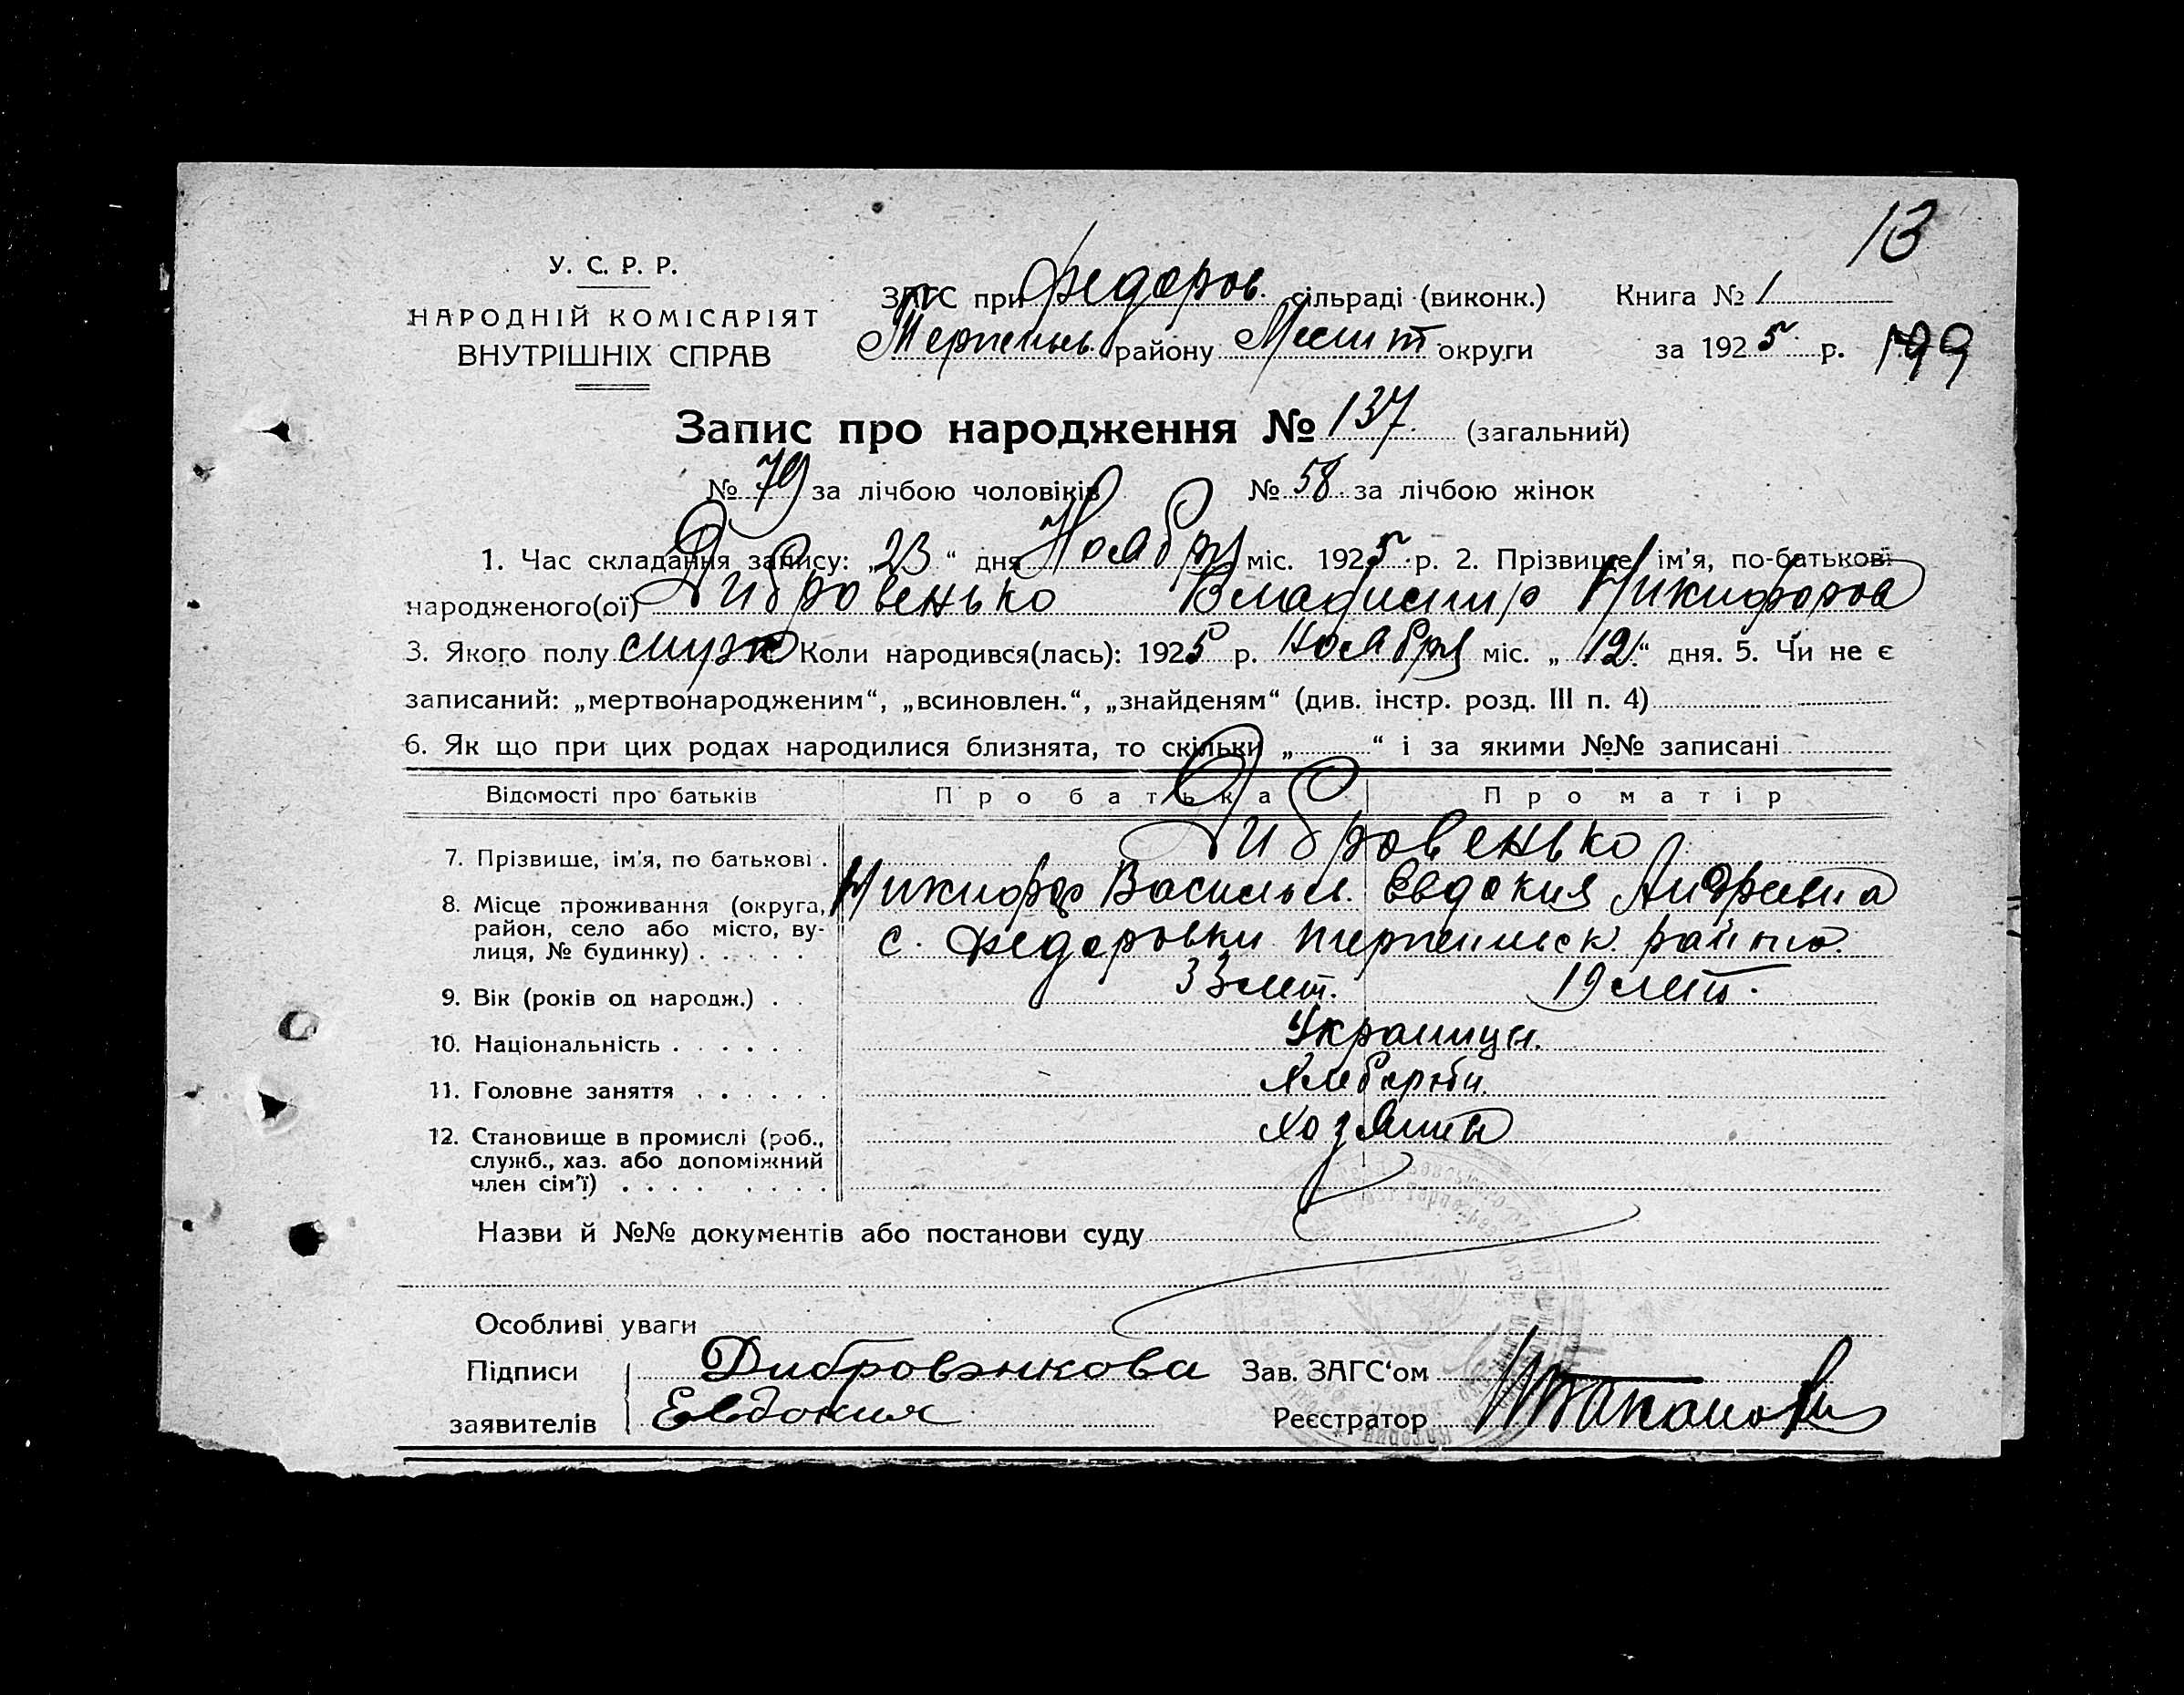 13
У. С. Р. Р.
НАРОДНІЙ КОМІСАРІЯТ
ВНУТРІШНІХ СПРАВ
ЗАГС при Федоров. сільраді (виконк.) Книга № 1
Терпеньев району Мелит округи за 1925 р. 199
Запис про народження № 137. (загальний)
№ 79 за лічбою чоловіків № 58. за лічбою жінок
1. Час складання запису: „23“ дня Ноября міс. 1925 р. 2. Прізвище, ім'я, по-батькові
народженого(ої) Дибровенько Владимир Никифоров
3. Якого полу муж Коли народився(лась): 1925 р. Ноября міс. „12“ дня. 5. Чи не є
записаний: „мертвонародженим“, „всиновлен.“, „знайденям“ (див. інстр. розд. III п. 4)
6. Як що при цих родах народилися близнята, то скільки „ “ і за якими №№ записані
Відомості про батьків Про батька Про матір
7. Прізвище, ім'я, по батькові . Дибровенько
Никифор Васильев. Евдокия Андреевна
8. Місце проживання (округа, район, село або місто, вулиця, № будинку) . . . . . с. Федоровки Терпеньевск. района.
9. Вік (років од народж.) . . 33 лет. 19 лет.
10. Національність . . . . . . Украинцы.
11. Головне заняття . . . . . . Хлебороби.
12. Становище в промислі (роб., служб., хаз. або допоміжний член сім'ї) . . . . . . . . Хозяин
Назви й №№ документів або постанови суду
Особливі уваги
Підписи заявителів
Дибровэнкова
Евдокия
Зав. ЗАГС'ом
Реєстратор